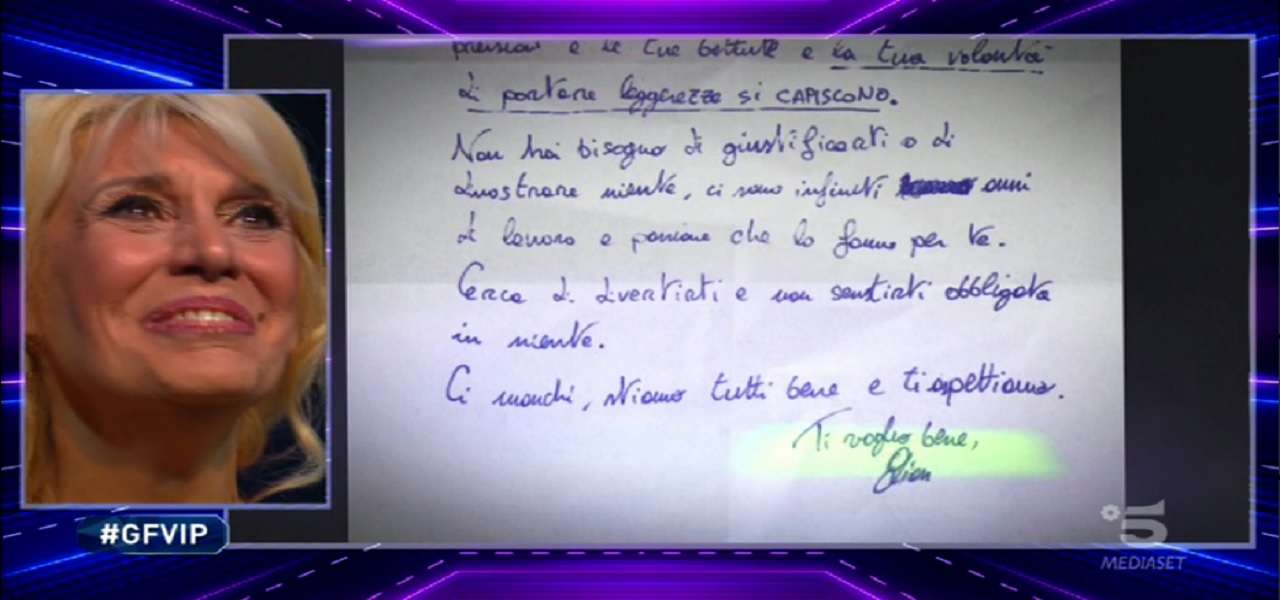 e le tue battute e la tua volontà
di portare leggerezza si CAPISCONO.
Non hai bisogno di giustificarti o di
dimostrare niente, ci sono infiniti anni
di lavoro e passione che lo fanno per te.
Cerca di divertirti e non sentirti obbligata
in niente.
Ci manchi, stiamo tutti bene e ti aspettiamo.
Ti voglio bene,
#GFVIP
5
MEDIASET